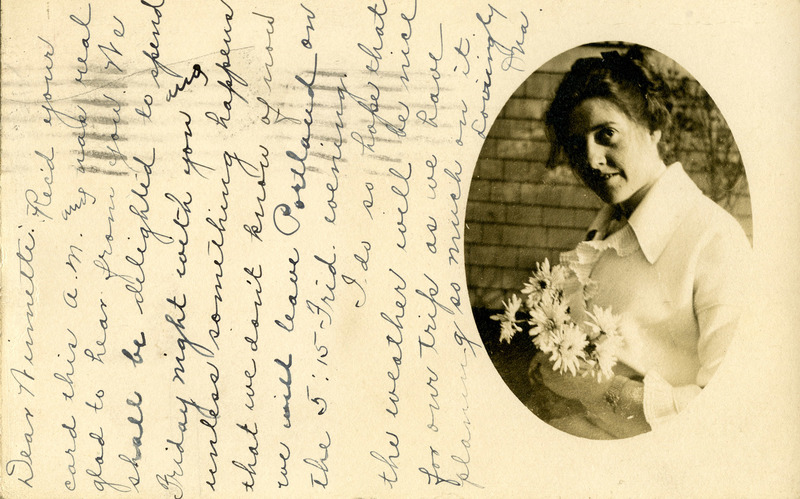 Dear Winnetti: Rec'd your
card this a.m. and was real
glad to hear from you. We
shall be delighted to spend
Friday night with you and
unless something happens
that we don't know of now
we will leave Portland on
the 5:15 Frid. evening.
I do so hope that
the weather will be nice
for our trip as we have
planing so much on it.
Lovingly